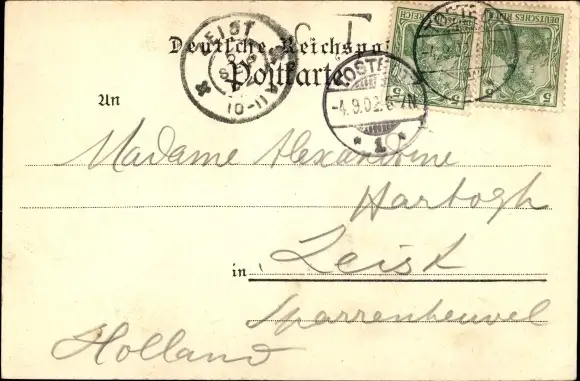 Deutsche Reichspost
Postkarte
ZEIST
10-11
-4.9.02. 6-7N
* 1 *
DEUTSCHES REICH
5 5
5 5
An
Madame Alexandrine
Hartogh
in Zeist
Sparrenheuvel
Holland